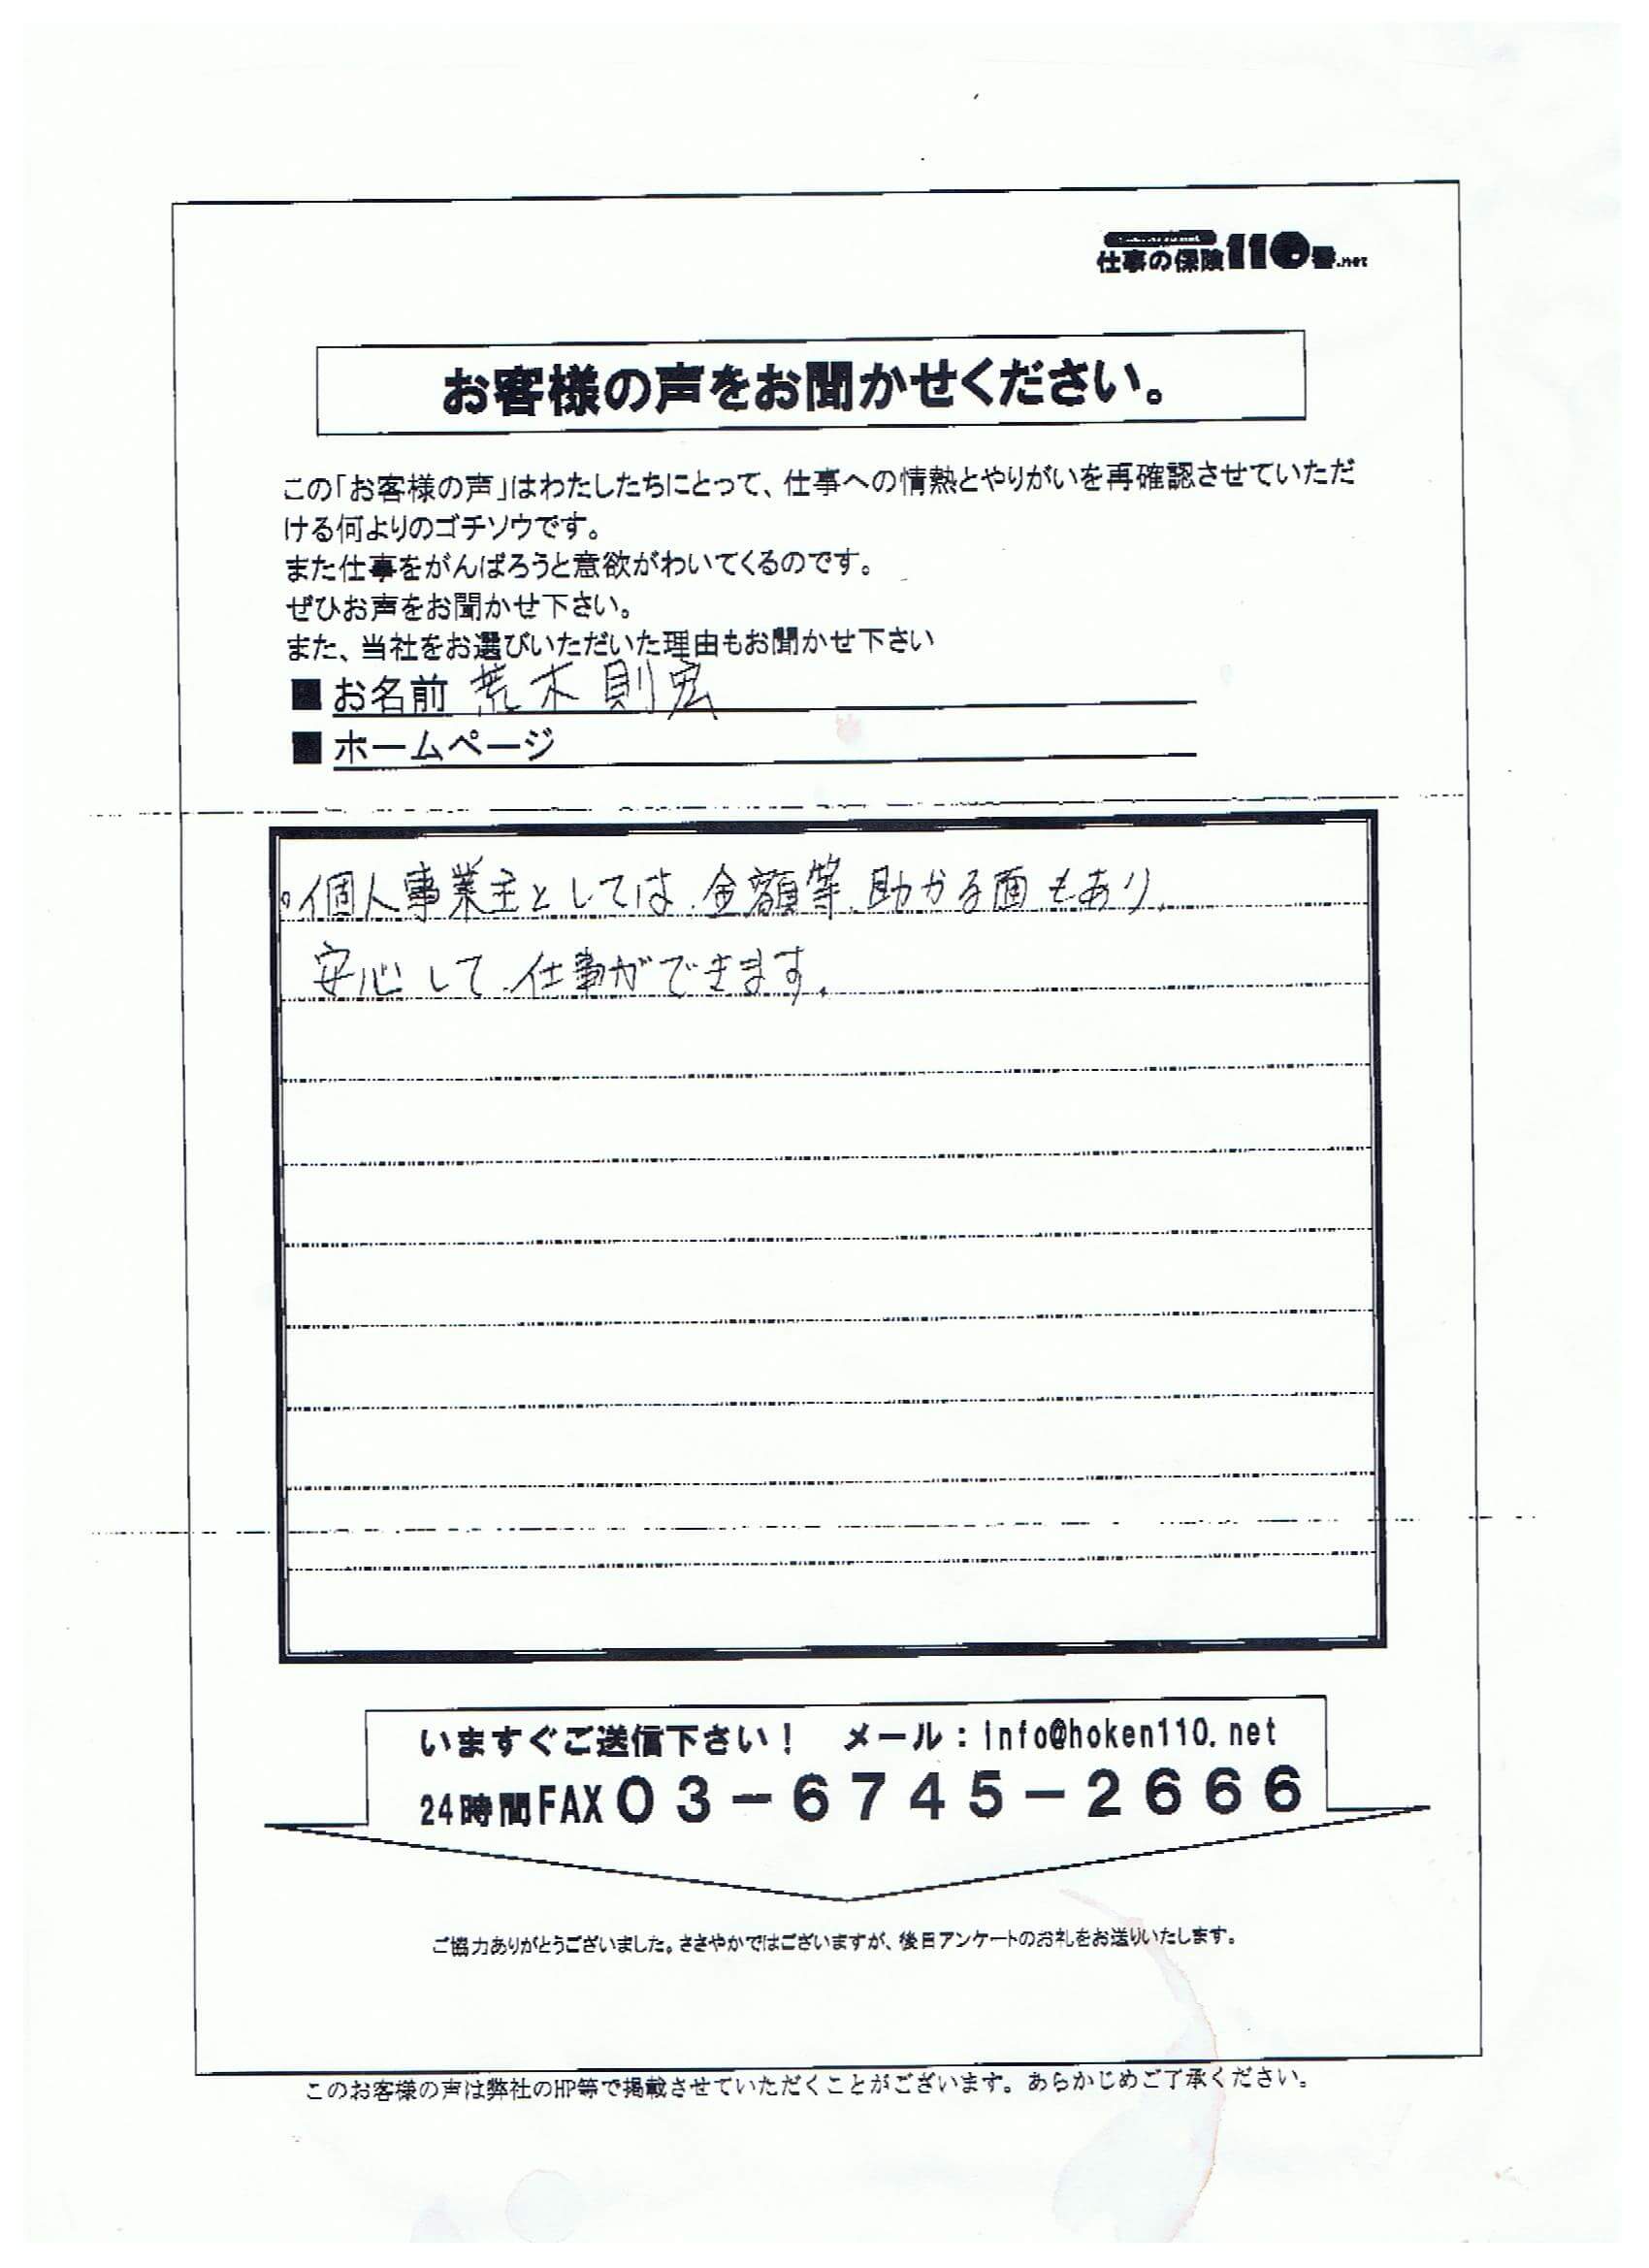 仕事の保険110番.net
お客様の声をお聞かせください。
この「お客様の声」はわたしたちにとって、仕事への情熱とやりがいを再確認させていただ
ける何よりのゴチソウです。
また仕事をがんばろうと意欲がわいてくるのです。
ぜひお声をお聞かせ下さい。
また、当社をお選びいただいた理由もお聞かせ下さい
■お名前 荒木則宏
■ホームページ
。個人事業主としては、金額等、助かる面もあり、
安心して、仕事ができます。
いますぐご送信下さい！ メール：info@hoken110.net
24時間FAX03-6745-2666
ご協力ありがとうございました。ささやかではございますが、後日アンケートのお礼をお送りいたします。
このお客様の声は弊社のHP等で掲載させていただくことがございます。あらかじめご了承ください。